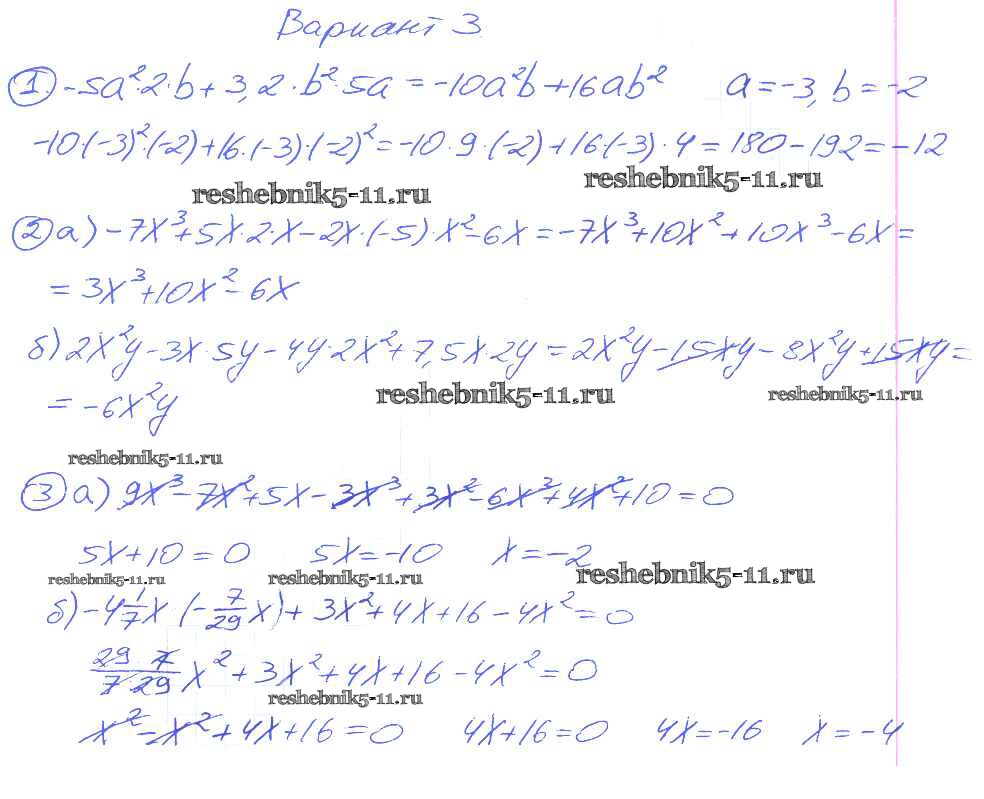 Вариант 3
① -5a²·2·b + 3,2·b²·5a = -10a²b + 16ab² a = -3, b = -2
-10·(-3)²·(-2) + 16·(-3)·(-2)² = -10·9·(-2) + 16·(-3)·4 = 180 - 192 = -12
reshebnik5-11.ru reshebnik5-11.ru
② а) -7x³ + 5x·2·x - 2x·(-5)·x² - 6x = -7x³ + 10x² + 10x³ - 6x =
= 3x³ + 10x² - 6x
б) 2x²y - 3x·5y - 4y·2x² + 7,5x·2y = 2x²y - 15xy - 8x²y + 15xy =
reshebnik5-11.ru reshebnik5-11.ru
= -6x²y
reshebnik5-11.ru
③ а) 9x³ - 7x² + 5x - 3x³ + 3x² - 6x³ + 4x² + 10 = 0
5x + 10 = 0 5x = -10 x = -2
reshebnik5-11.ru reshebnik5-11.ru reshebnik5-11.ru
б) -4 1/7 x·(-7/29 x) + 3x² + 4x + 16 - 4x² = 0
29·7/7·29 x² + 3x² + 4x + 16 - 4x² = 0
reshebnik5-11.ru
x² - x² + 4x + 16 = 0 4x + 16 = 0 4x = -16 x = -4